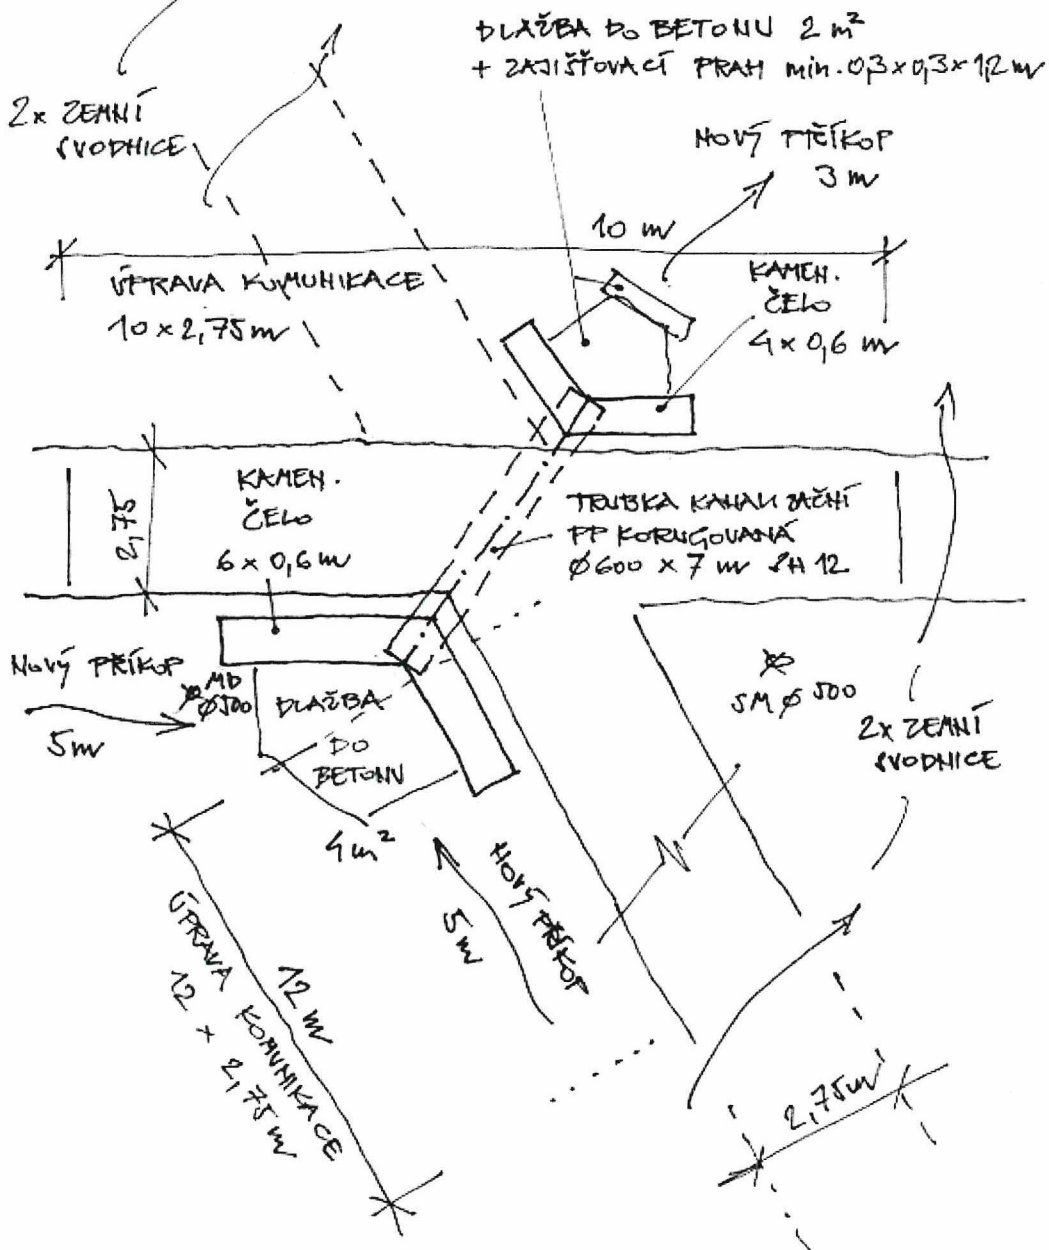 DLAŽBA DO BETONU 2 m²
+ ZAJIŠŤOVACÍ PRAH min. 0,3 x 0,3 x 1,2 m
2x ZEMNÍ
SVODNICE
NOVÝ PŘÍKOP
3 m
10 m
ÚPRAVA KOMUNIKACE
10 x 2,75 m
KAMEN.
ČELO
4 x 0,6 m
2,75
KAMEN.
ČELO
6 x 0,6 m
TRUBKA KANALIZAČNÍ
PP KORUGOVANÁ
Ø600 x 7 m SN 12
NOVÝ PŘÍKOP
5 m
MD
Ø500
DLAŽBA
DO
BETONU
4 m²
SM Ø 500
2x ZEMNÍ
SVODNICE
NOVÝ PŘÍKOP
5 m
12 m
ÚPRAVA KOMUNIKACE
12 x 2,75 m
2,75 m